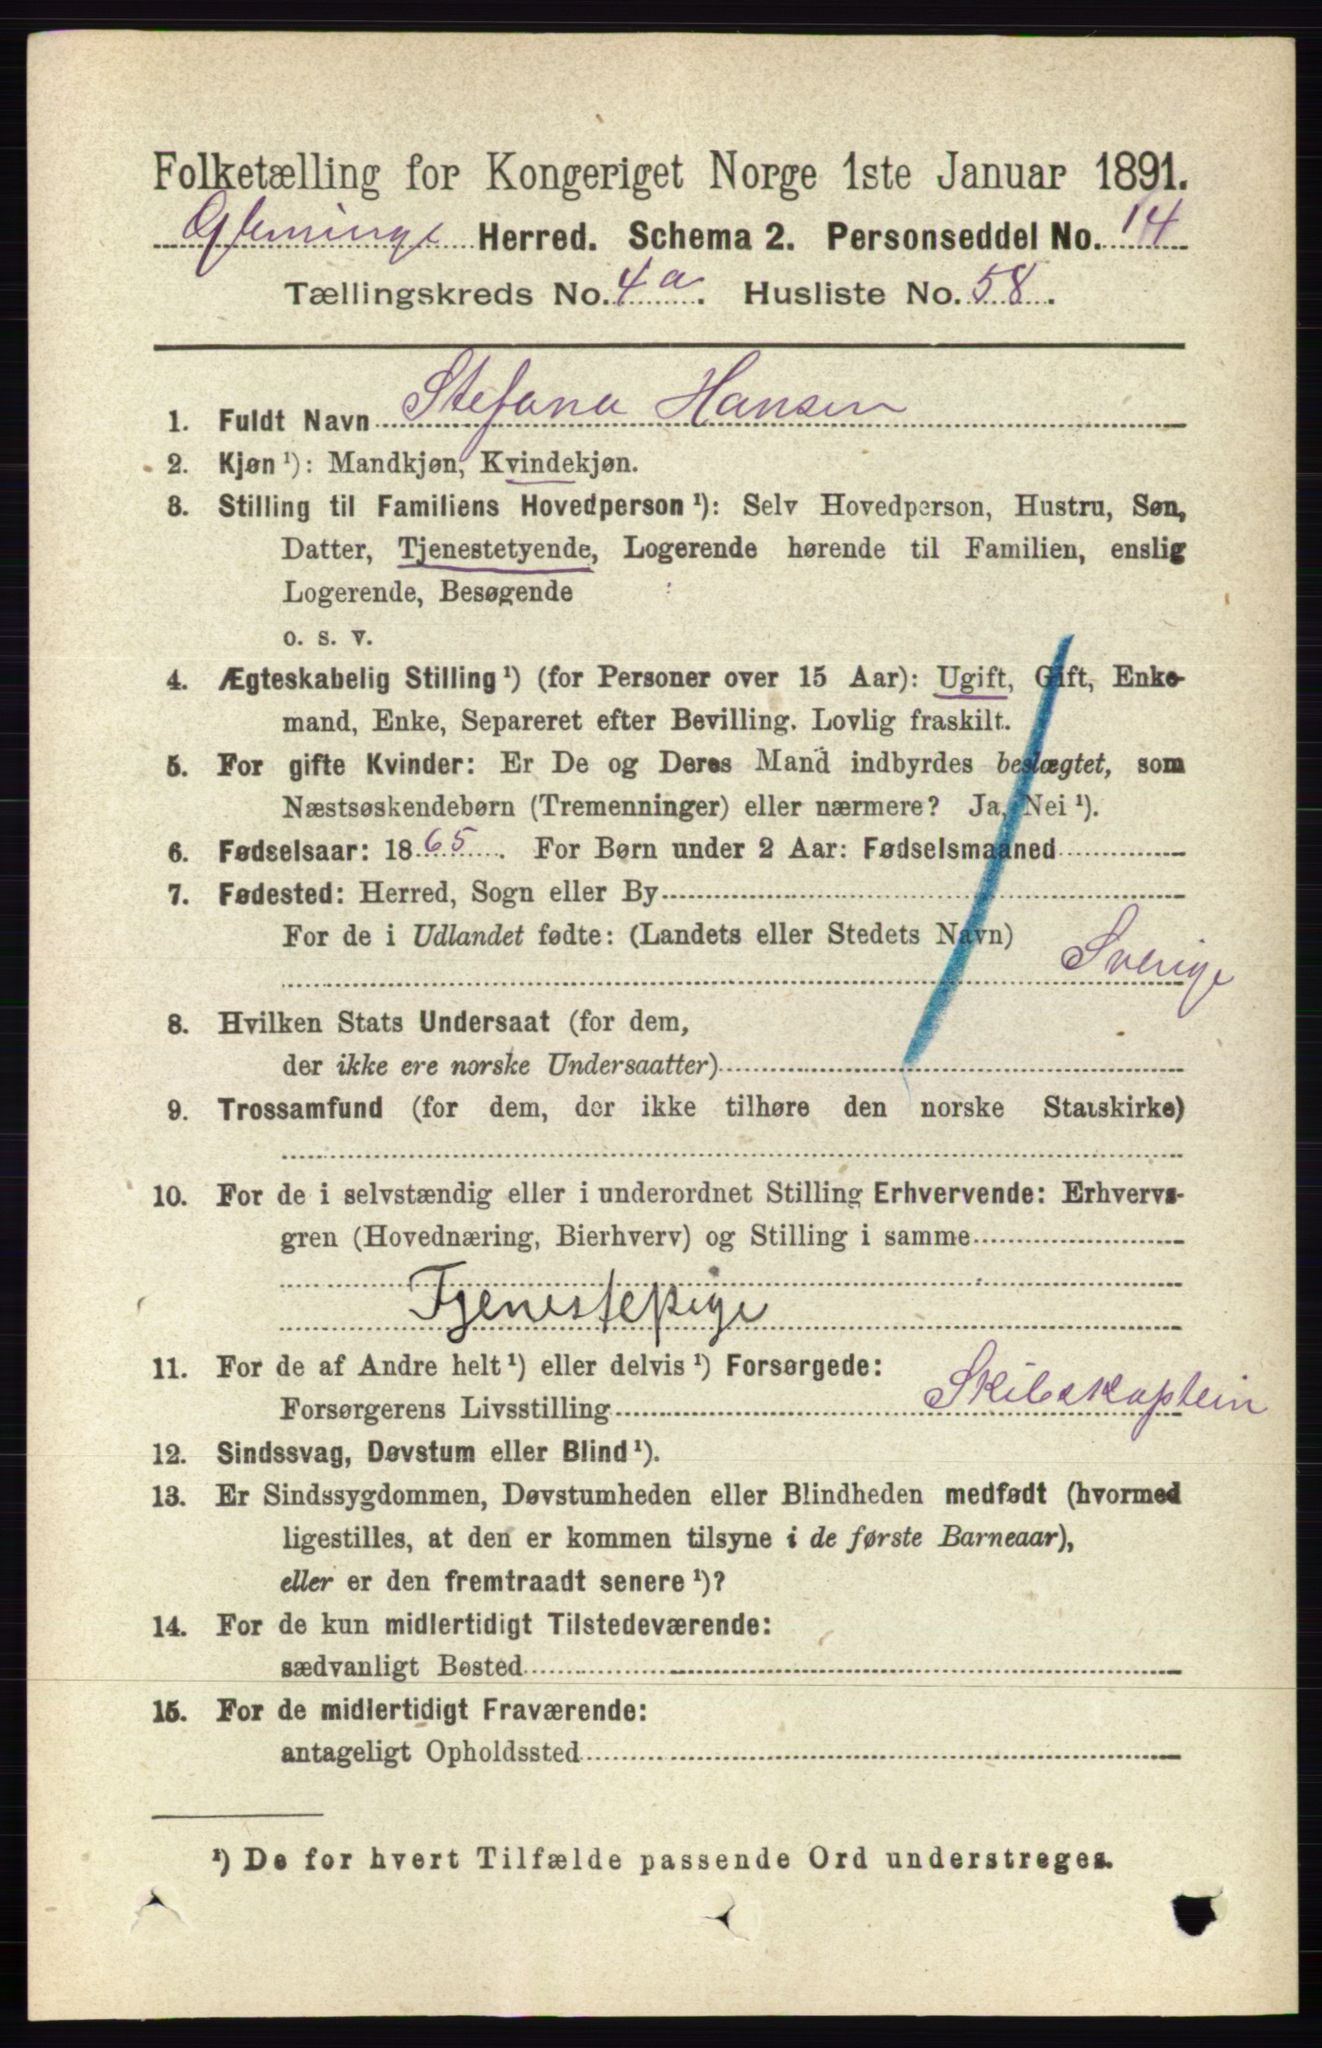 Folketælling for Kongeriget Norge 1ste Januar 1891.
Glemminge Herred. Schema 2. Personseddel No. 14
Tællingskreds No. 4a. Husliste No. 58.
1. Fuldt Navn Stefana Hansen
2. Kjøn ¹): Mandkjøn, Kvindekjøn.
3. Stilling til Familiens Hovedperson ¹): Selv Hovedperson, Hustru, Søn,
Datter, Tjenestetyende, Logerende hørende til Familien, enslig
Logerende, Besøgende
o. s. v.
4. Ægteskabelig Stilling ¹) (for Personer over 15 Aar): Ugift, Gift, Enke-
mand, Enke, Separeret efter Bevilling. Lovlig fraskilt.
5. For gifte Kvinder: Er De og Deres Mand indbyrdes beslægtet, som
Næstsøskendebørn (Tremenninger) eller nærmere? Ja, Nei ¹).
6. Fødselsaar: 1865. For Børn under 2 Aar: Fødselsmaaned
7. Fødested: Herred, Sogn eller By
For de i Udlandet fødte: (Landets eller Stedets Navn)
Sverige
8. Hvilken Stats Undersaat (for dem,
der ikke ere norske Undersaatter)
9. Trossamfund (for dem, der ikke tilhøre den norske Statskirke)
10. For de i selvstændig eller i underordnet Stilling Erhvervende: Erhvervs-
gren (Hovednæring, Bierhverv) og Stilling i samme
Tjenestepige
11. For de af Andre helt ¹) eller delvis ¹) Forsørgede:
Forsørgerens Livsstilling Skibskaptein
12. Sindssvag, Døvstum eller Blind ¹).
13. Er Sindssygdommen, Døvstumheden eller Blindheden medfødt (hvormed
ligestilles, at den er kommen tilsyne i de første Barneaar),
eller er den fremtraadt senere ¹)?
14. For de kun midlertidigt Tilstedeværende:
sædvanligt Bosted
15. For de midlertidigt Fraværende:
antageligt Opholdssted
¹) De for hvert Tilfælde passende Ord understreges.